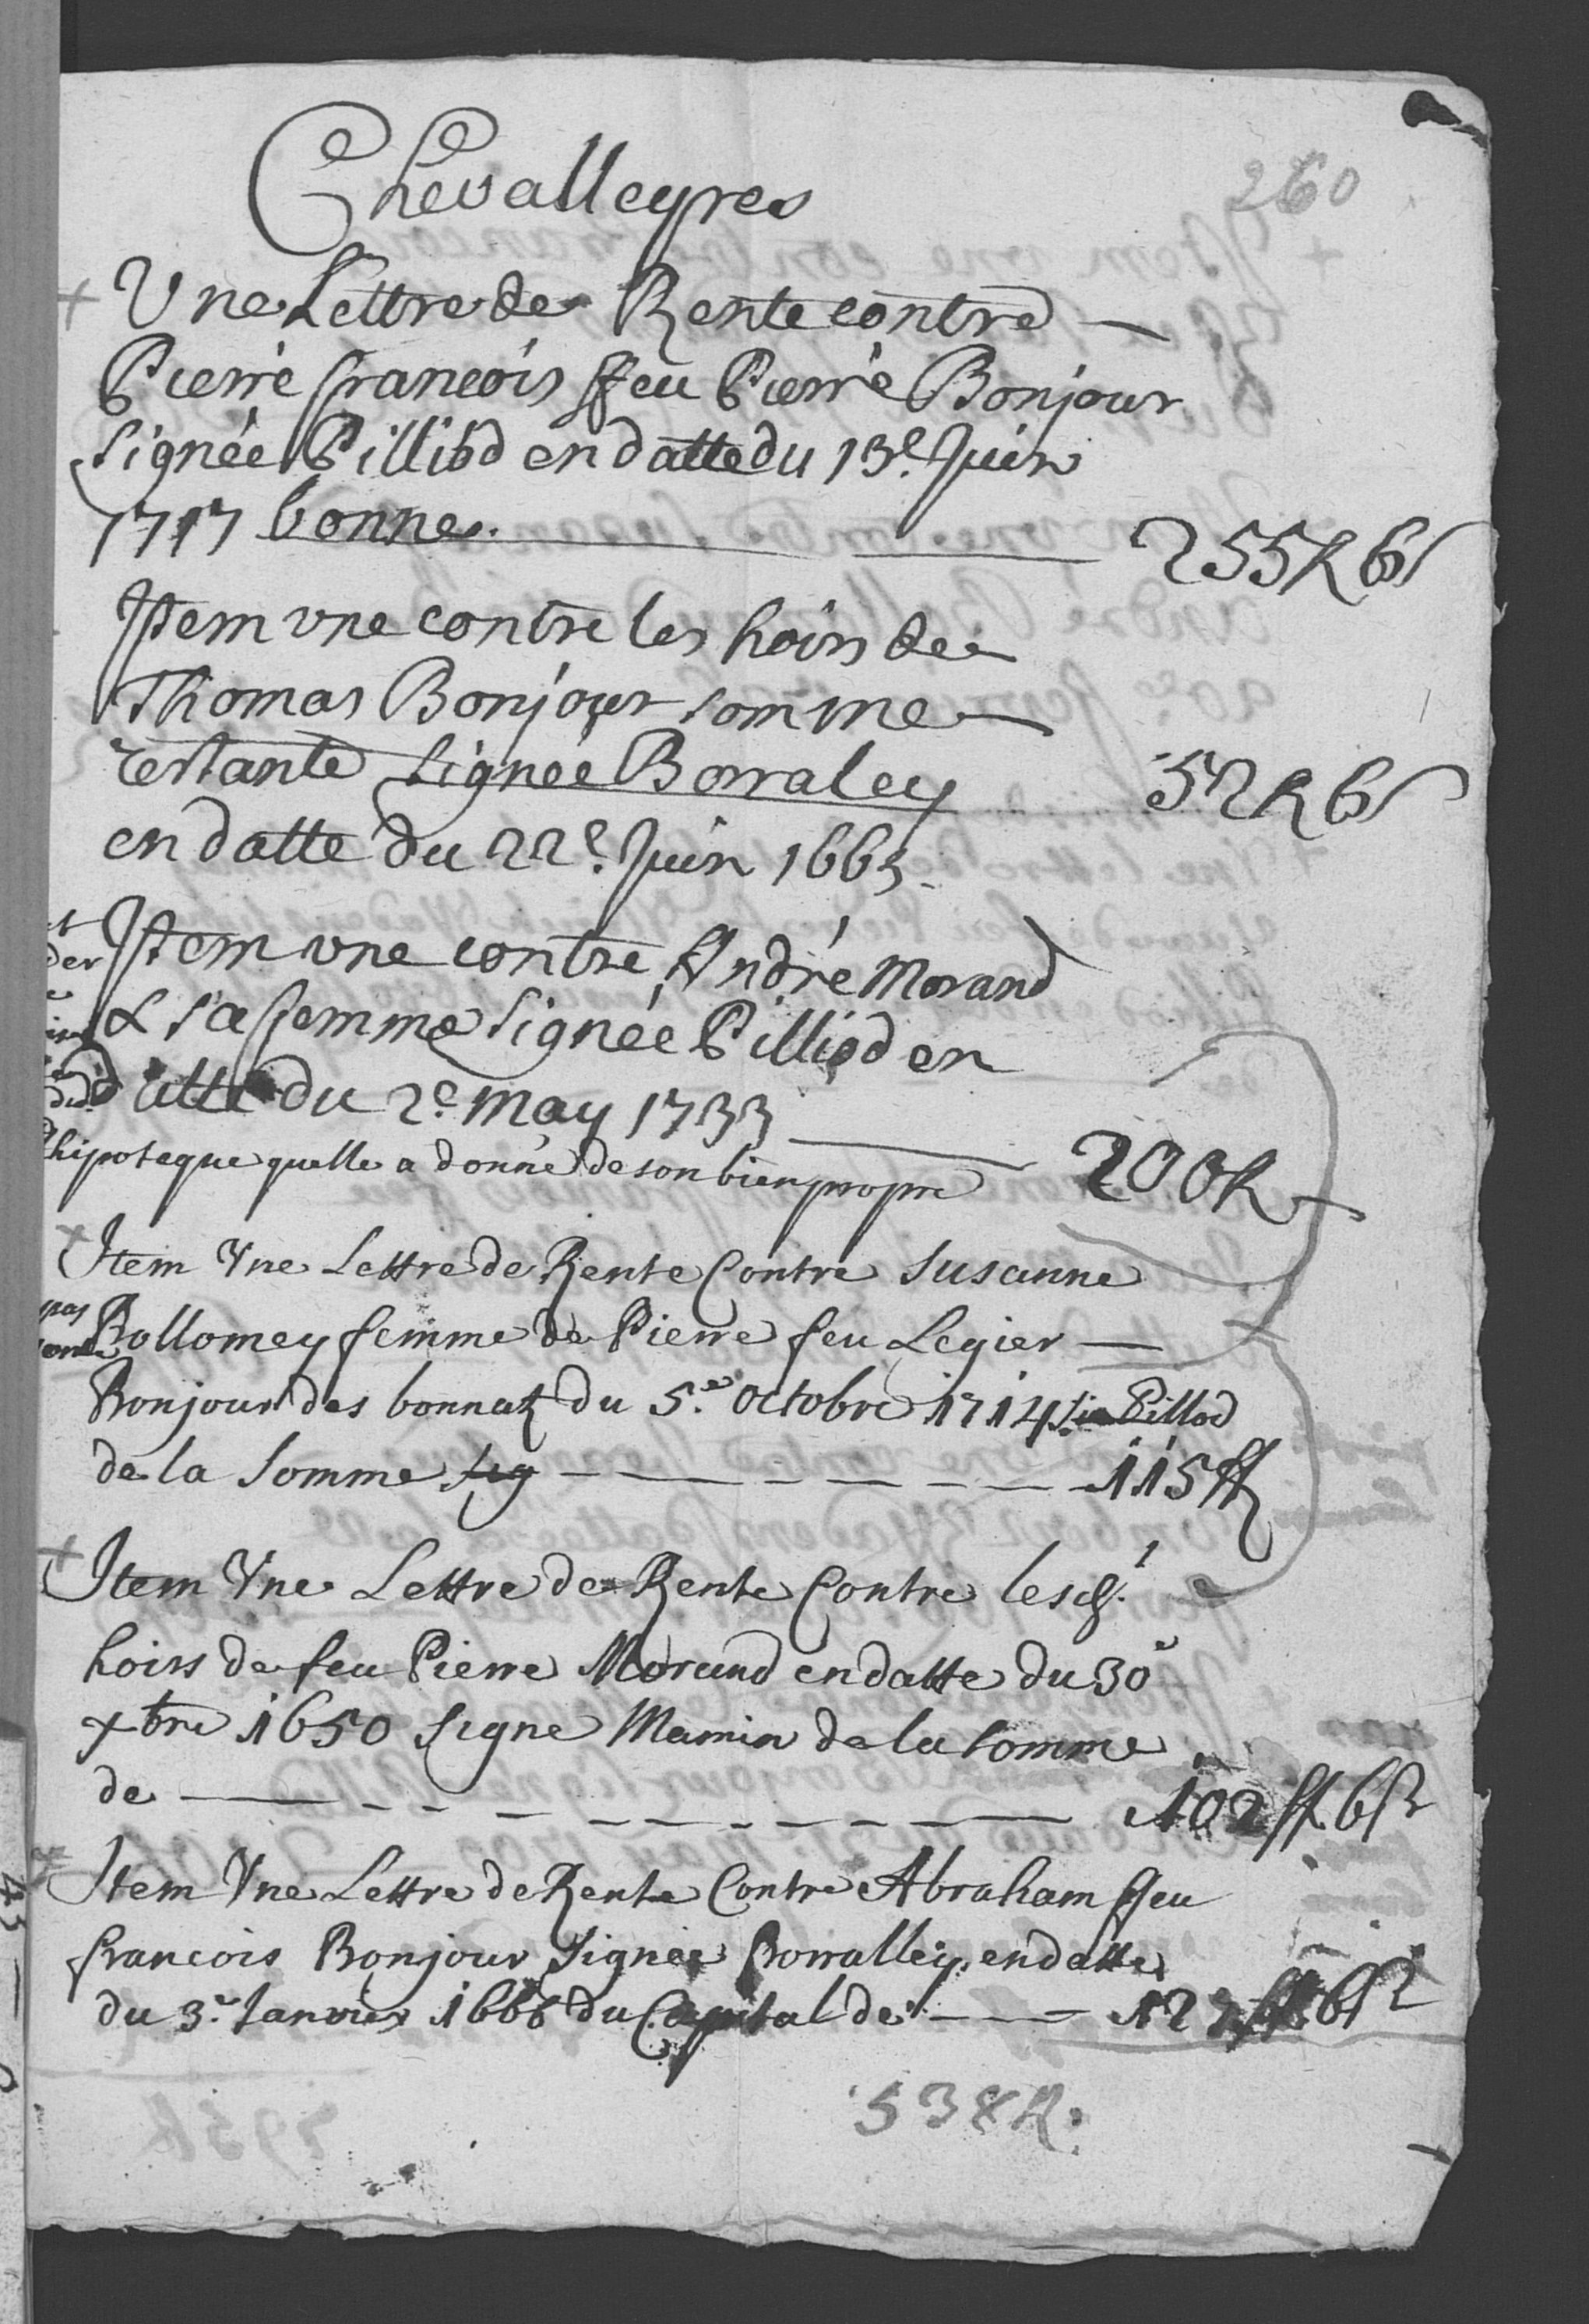 260
Chevalleyres
+ Une Lettre de Rente contre
Pierre francois ffeu Pierre Bonjour
signée Pilliod en datte du 13e. Juin
1717 bonne. 255 ff 6 s
Item une contre les hoirs de
Thomas Bonjour somme
restante signée Borraley 52 ff 6 s
en datte du 22e. Juin 1663.
Item une contre André Morand
& sa femme signée Pilliod en
datte du 2e may 1733 200 ff
hipoteque quelle a donné de son bien propre
+ Item Une Lettre de Rente Contre Susanne
pas
Bollomey femme de Pierre feu Legier
Bonjour des bonnatz du 5.e Octobre 1714 Pillod
de la Somme sig 115 ff
+ Item Une Lettre de Rente Contre
hoirs de feu Pierre Morand en datte du 30e
xbre 1650 signe Mamin de la somme
de 102 ff. 6 s
Item Une Lettre de Rente Contre Abraham ffeu
francois Bonjour Signée Borralley en datte
du 3.e Janvier 1668 du Capital de 6 s
538 ff.